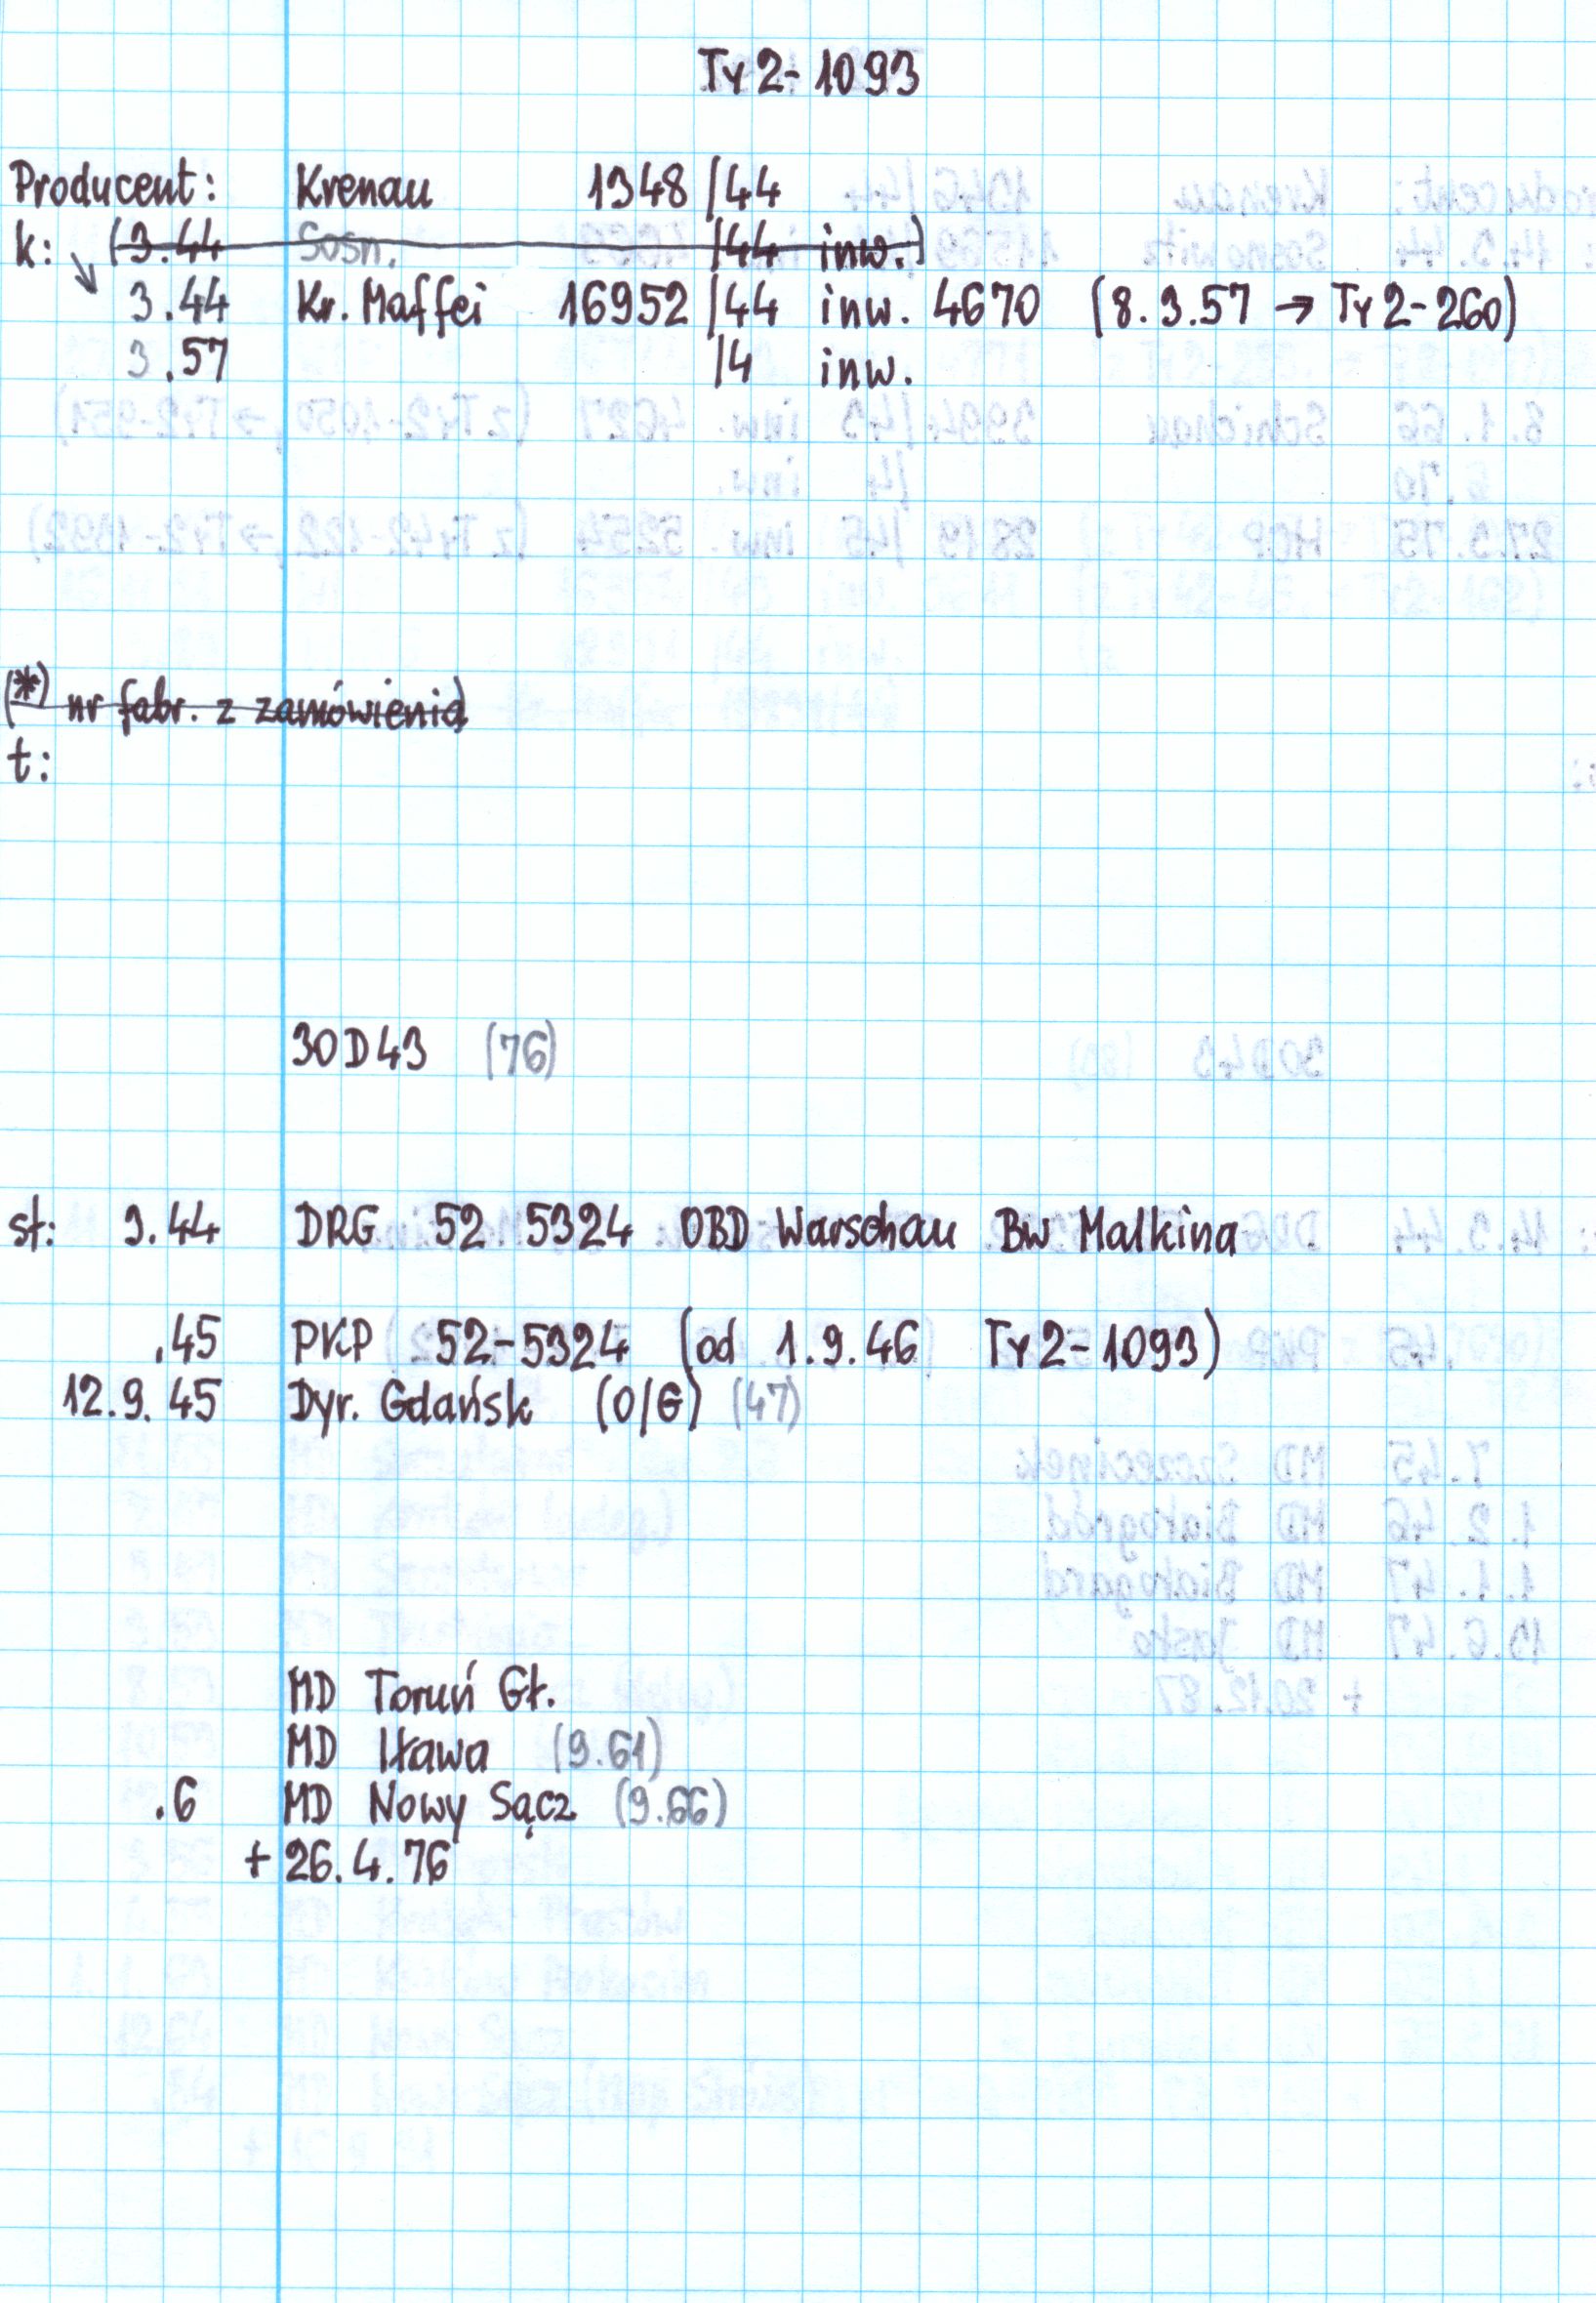 Ty2-1093
Producent: Krenau 1348/44
k: (3.44 Sosn. /44 inw.)
↘ 3.44 Kr. Maffei 16952/44 inw. 4670 (8.3.57 → Ty2-260)
3.57 /4 inw.
(*) nr fabr. z zamówienia)
t:
30D43 (76)
st: 3.44 DRG 52 5324 OBD Warschau Bw Malkina
.45 PKP 52-5324 (od 1.9.46 Ty2-1093)
12.9.45 Dyr. Gdańsk (O/G) (47)
MD Toruń Gł.
MD Iława (9.61)
.6 MD Nowy Sącz (9.66)
+ 26.4.76